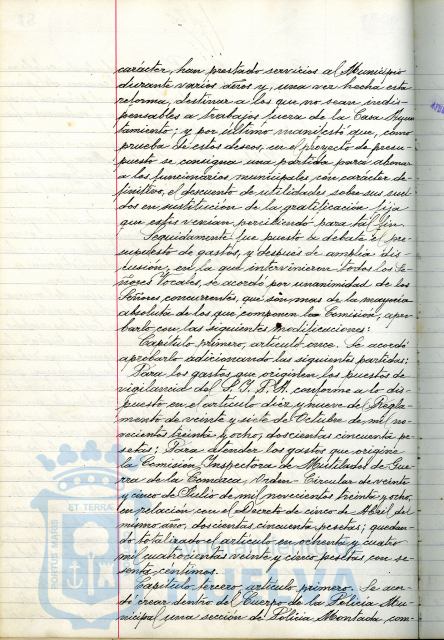 carácter, han prestado servicios al Municipio
durante varios años y, una vez hecha esta
reforma, destinar a los que no sean indis-
pensables a trabajos fuera de la Casa Ayun-
tamiento; y por último manifestó que, como
prueba de estos deseos, en el proyecto de presu-
puesto se consigna una partida para abonar
a los funcionarios municipales con carácter de-
finitivo, el descuento de utilidades sobre sus suel-
dos en sustitución de la gratificación fija
que estos venian percibiendo para tal fin.
Seguidamente fue puesto a debate el pre-
supuesto de gastos, y después de amplia dis-
cusión, en la que intervinieron todos los Se-
ñores Vocales, se acordó por unanimidad de los
Señores concurrentes, que son mas de la mayoria
absoluta de los que componen la Comisión, apro-
barlo con las siguientes modificaciones:
Capítulo primero, artículo once. Se acordó
aprobarlo adicionando las siguientes partidas:
Para los gastos que originen los puestos de
vigilancia del S.I.P.M. conforme a lo dis-
puesto en el artículo diez y nueve del Regla-
mento de veinte y siete de Octubre de mil no-
vecientos treinta y ocho, doscientas cincuenta pe-
setas; Para atender los gastos que origine
la Comisión Inspectora de Mutilados de Gue-
rra de la Comarca, Orden-Circular de veinte
y cinco de Julio de mil novecientos treinta y ocho,
en relación con el Decreto de cinco de Abril del
mismo año, doscientas cincuenta pesetas; quedan-
do totalizado el artículo en ochenta y cuatro
mil cuatrocientas veinte y cinco pesetas, con se-
senta céntimos.
Capítulo tercero, artículo primero. Se acor-
dó crear dentro del Cuerpo de la Policia Mu-
nicipal una sección de Policia Montada, com-
PORTUS MARIS
ET TERRAE
HUELVA